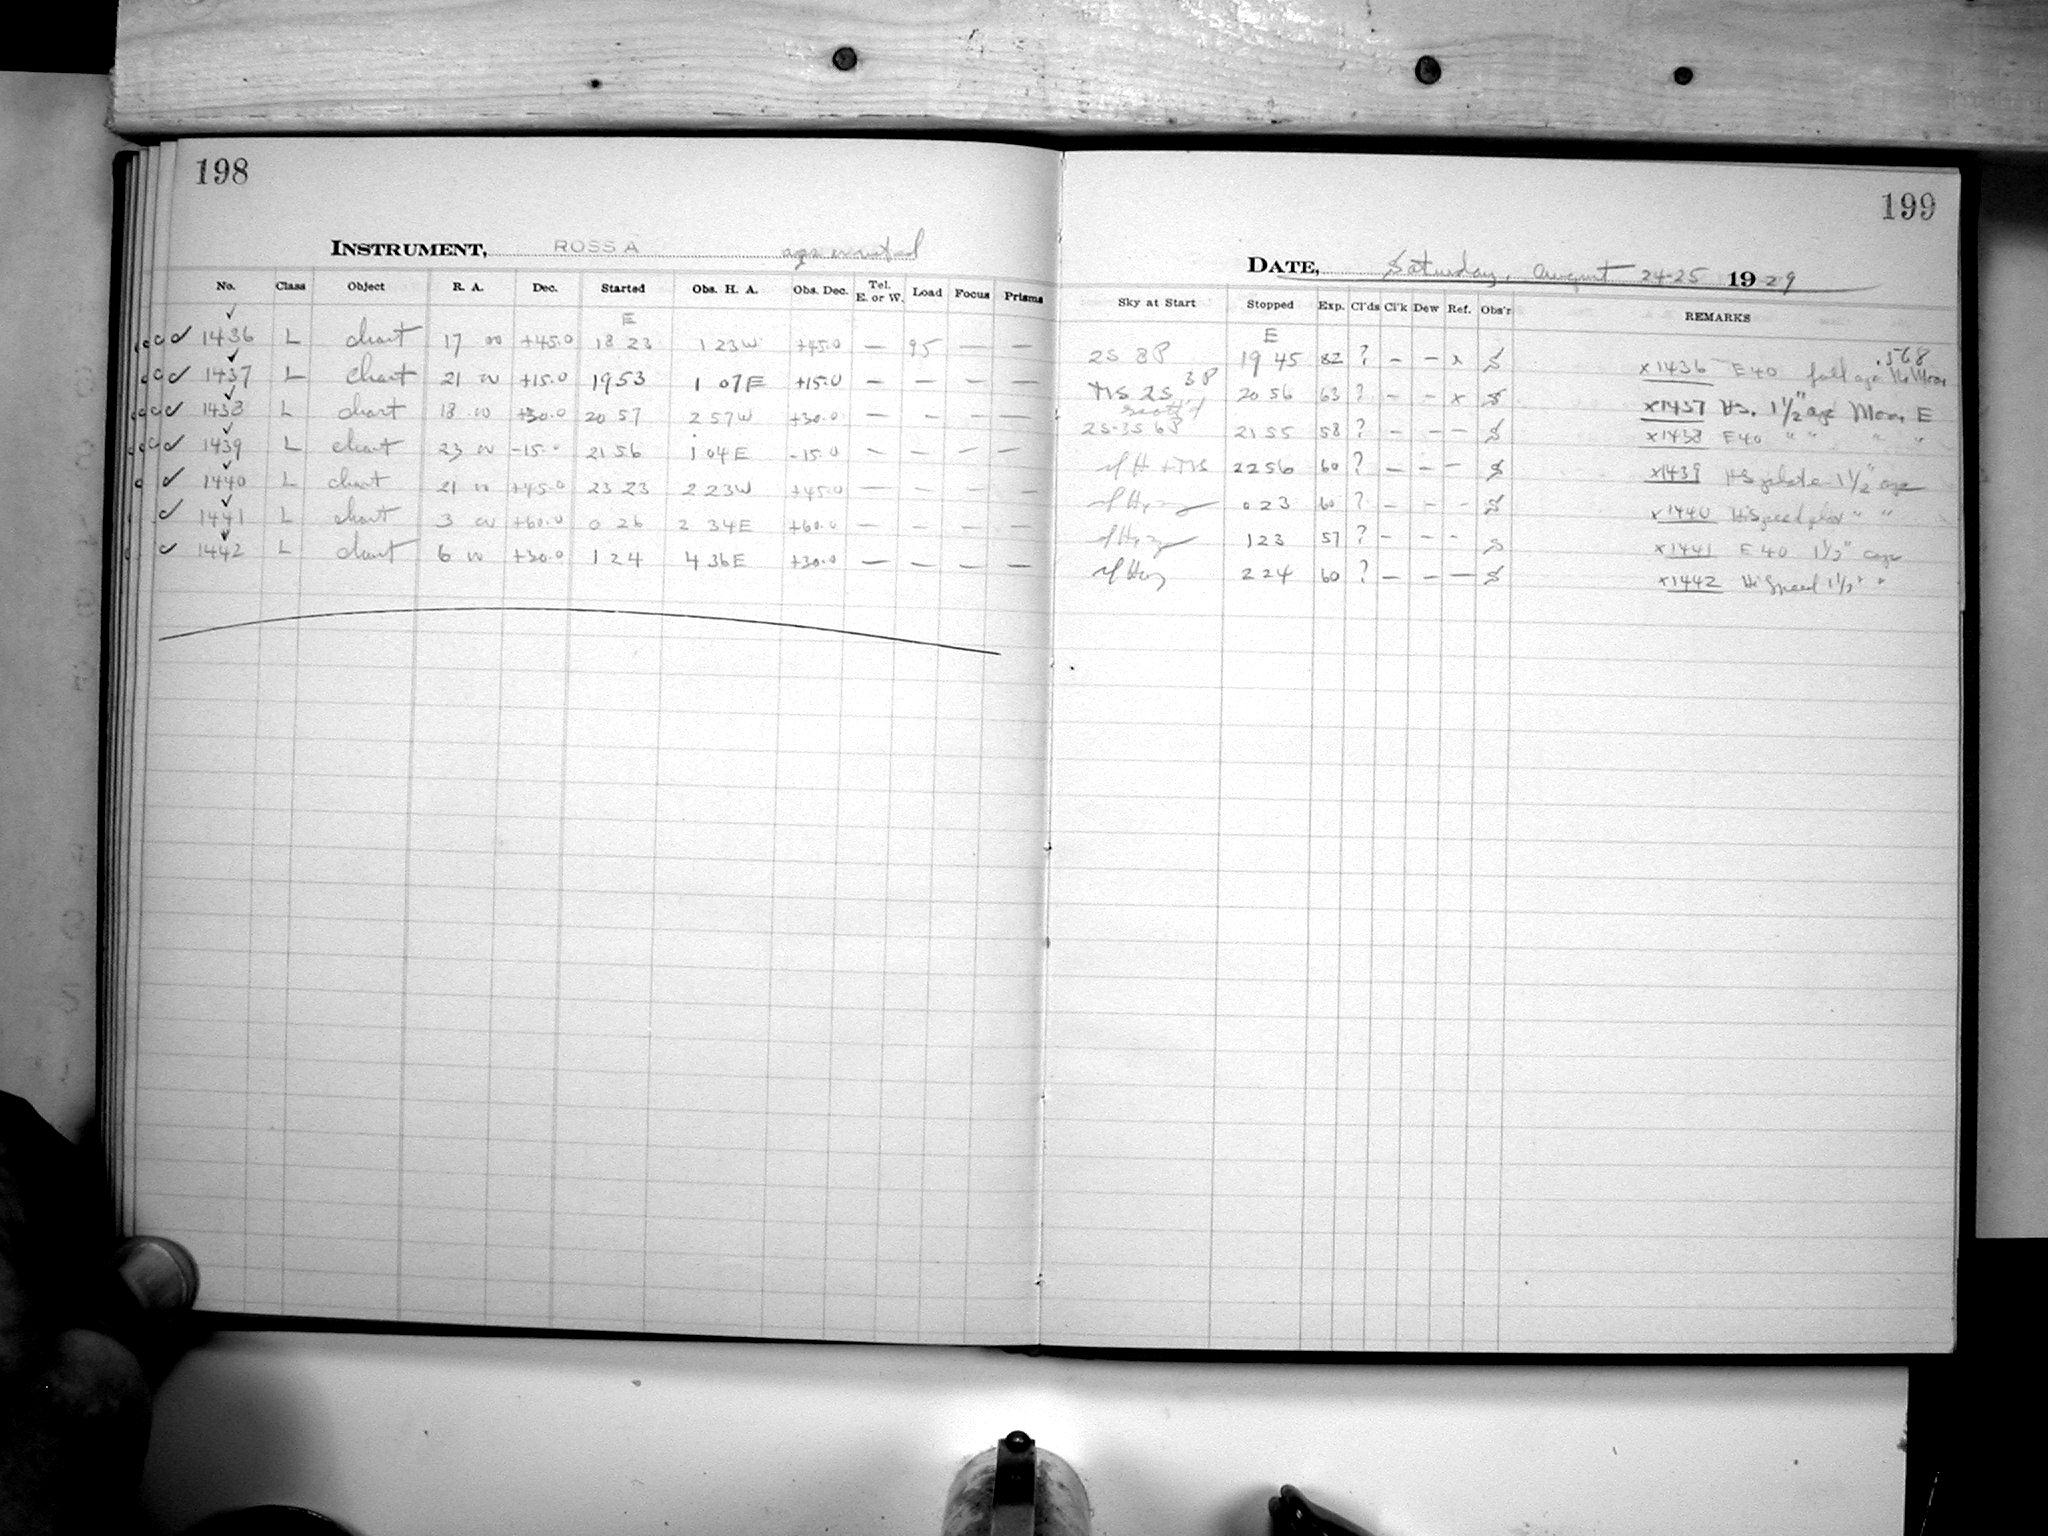 198
INSTRUMENT, ROSS A
No. Class Object R. A. Dec. Started Obs. H. A. Obs. Dec. Tel. E. or W. Load Focus Prisms
E
1436 L chart 17 00 +45.0 18 23 1 23W +45.0 — 95 — —
1437 L chart 21 00 +15.0 19 53 1 07E +15.0 — — — —
1438 L chart 18 00 +30.0 20 57 2 57W +30.0 — — — —
1439 L chart 23 00 -15.0 21 56 1 04E -15.0 — — — —
1440 L chart 21 00 +45.0 23 23 2 23W +45.0 — — — —
1441 L chart 3 00 +60.0 0 26 2 34E +60.0 — — — —
1442 L chart 6 00 +30.0 1 24 4 36E +30.0 — — — —
199
DATE, Saturday, August 24-25 1929
Sky at Start Stopped Exp. Cl'ds Cl'k Dew Ref. Obs'r REMARKS
E
2S 8P 19 45 82 ? — — x S x1436 E40 full ap .568
2S 3P 20 56 63 ? — — x S x1437 HS. 1½" ap Moon E
2S-3S 6P 21 55 58 ? — — — S x1438 E40 " " " "
22 56 60 ? — — — S x1439 HS plate 1½" ap
0 23 60 ? — — — S x1440 HiSpeed plate " "
1 23 57 ? — — — S x1441 E40 1½" ap
2 24 60 ? — — — S x1442 Hi Speed 1½" "